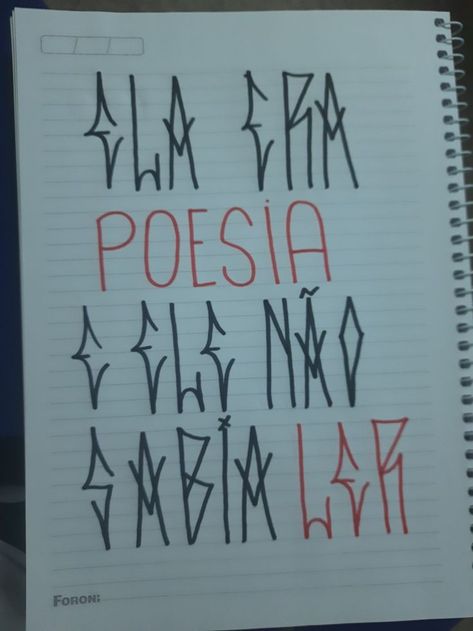 ELA ERA
POESIA
E ELE NÃO
SABIA LER
FORONI